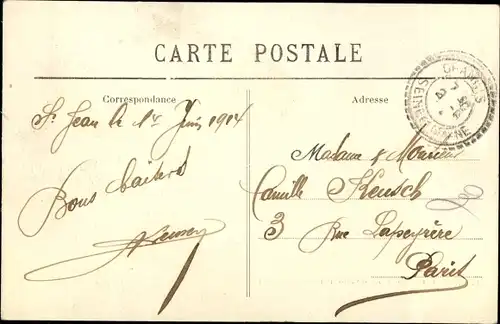 CARTE POSTALE
Correspondance
Adresse
St Jean le 1er Juin 1914
Bons baisers
Madame & Monsieur
Camille Keusch
3 Rue Lapeyrère
Paris
SEINE
MARNE